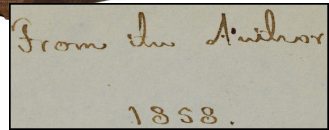 From the Author
1858.